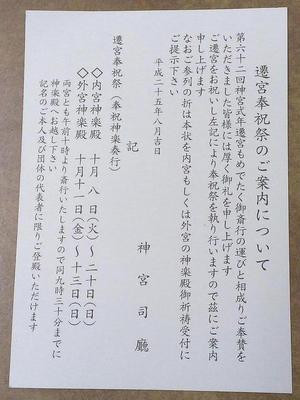 遷宮奉祝祭のご案内について
第六十二回神宮式年遷宮もめでたく御斎行の運びと相成りご奉賛を
いただきました皆様には厚く御礼を申し上げます
ご遷宮をお祝いし左記により奉祝祭を執り行いますので茲にご案内
申し上げます
なおご参列の折は本状を内宮もしくは外宮の神楽殿御祈祷受付に
ご提示下さい
平成二十五年八月吉日
神宮司廳
記
遷宮奉祝祭（奉祝神楽奏行）
◇内宮神楽殿 十月 八日（火）〜二十日（日）
◇外宮神楽殿 十月十一日（金）〜十三日（日）
両宮とも午前十時より斎行いたしますので同九時三十分までに
神楽殿へお越し下さい
記名のご本人及び団体の代表者に限りご登殿いただけます